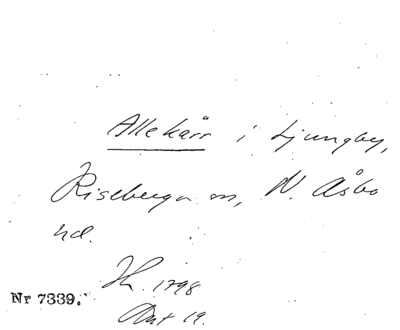 Allekärr i Ljungby,
Riseberga sn, N. Åsbo
hd.
H. 1798
Nr 7339.
Akt 19.